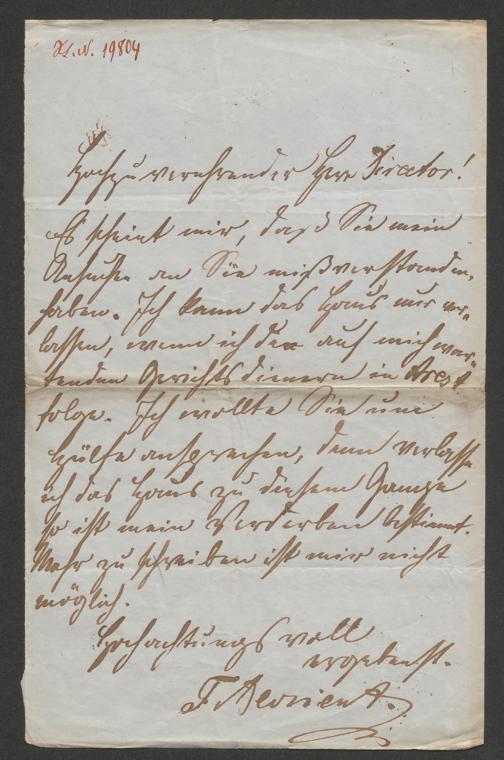 H.I.N. 19804
Hochzuverehrender Herr Director!
Es scheint mir, daß Sie mein
Ansuchen an Sie mißverstanden
haben. Ich kann das Haus nur ver-
lassen, wenn ich den auf mich war-
tenden Gerichtsdienern in Arest
folge. Ich wollte Sie um
Hülfe ansprechen, denn verlasse
ich das Haus zu diesem Gange
so ist mein Verderben bestimmt.
Mehr zu schreiben ist mir nicht
möglich.
Hochachtungsvoll
ergebenst.
F. Devrient.